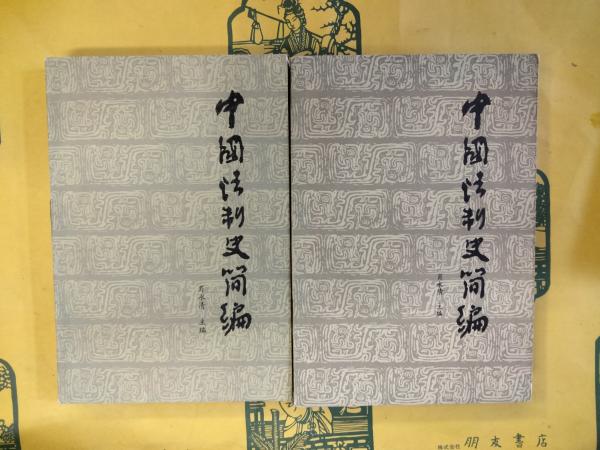 中國法制史简编
肖永清 主编
中國法制史简编
肖永清 主编
株式会社 朋友書店